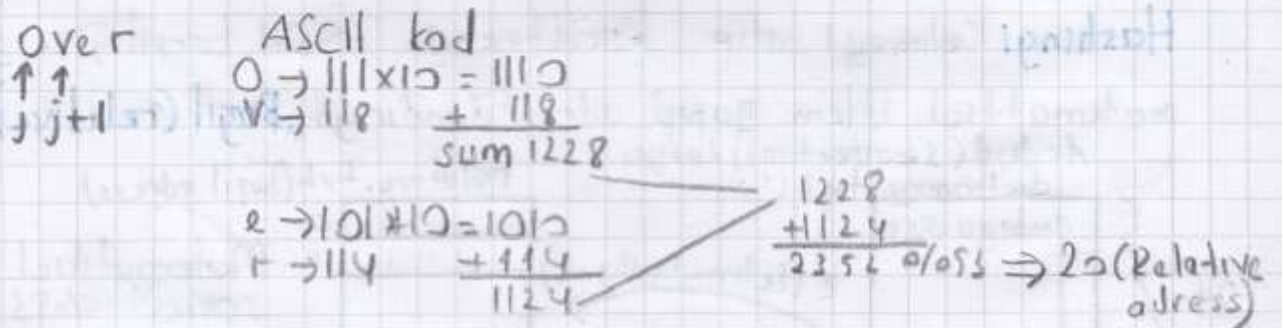 over ASCII kod
↑ ↑ O → 111x10 = 1110
j j+1 V → 118 + 118
sum 1228
e → 101*10=1010
r → 114 +114
1124
1228
+1124
2352 % ⇒ 20 (Relative
adress)